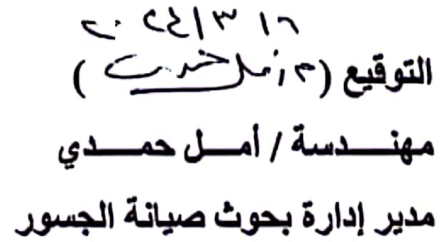 ٢٠٢٤/٣/١٦
التوقيع (م/أمل حمدى)
مهندسة / أمل حمدي
مدير إدارة بحوث صيانة الجسور